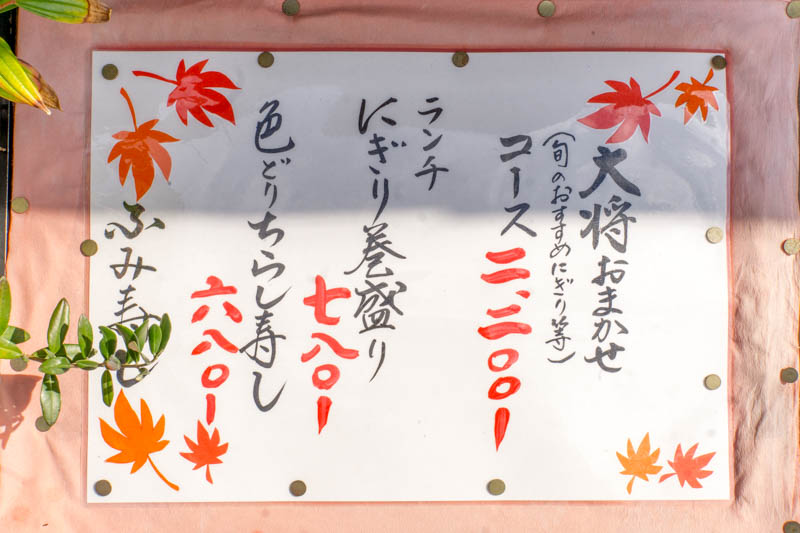 大将おまかせ
(旬のおすすめにぎり等)
コース
二、二〇〇ー
ランチ
にぎり巻盛り
七八〇ー
色どりちらし寿し
六八〇ー
ふみ寿し